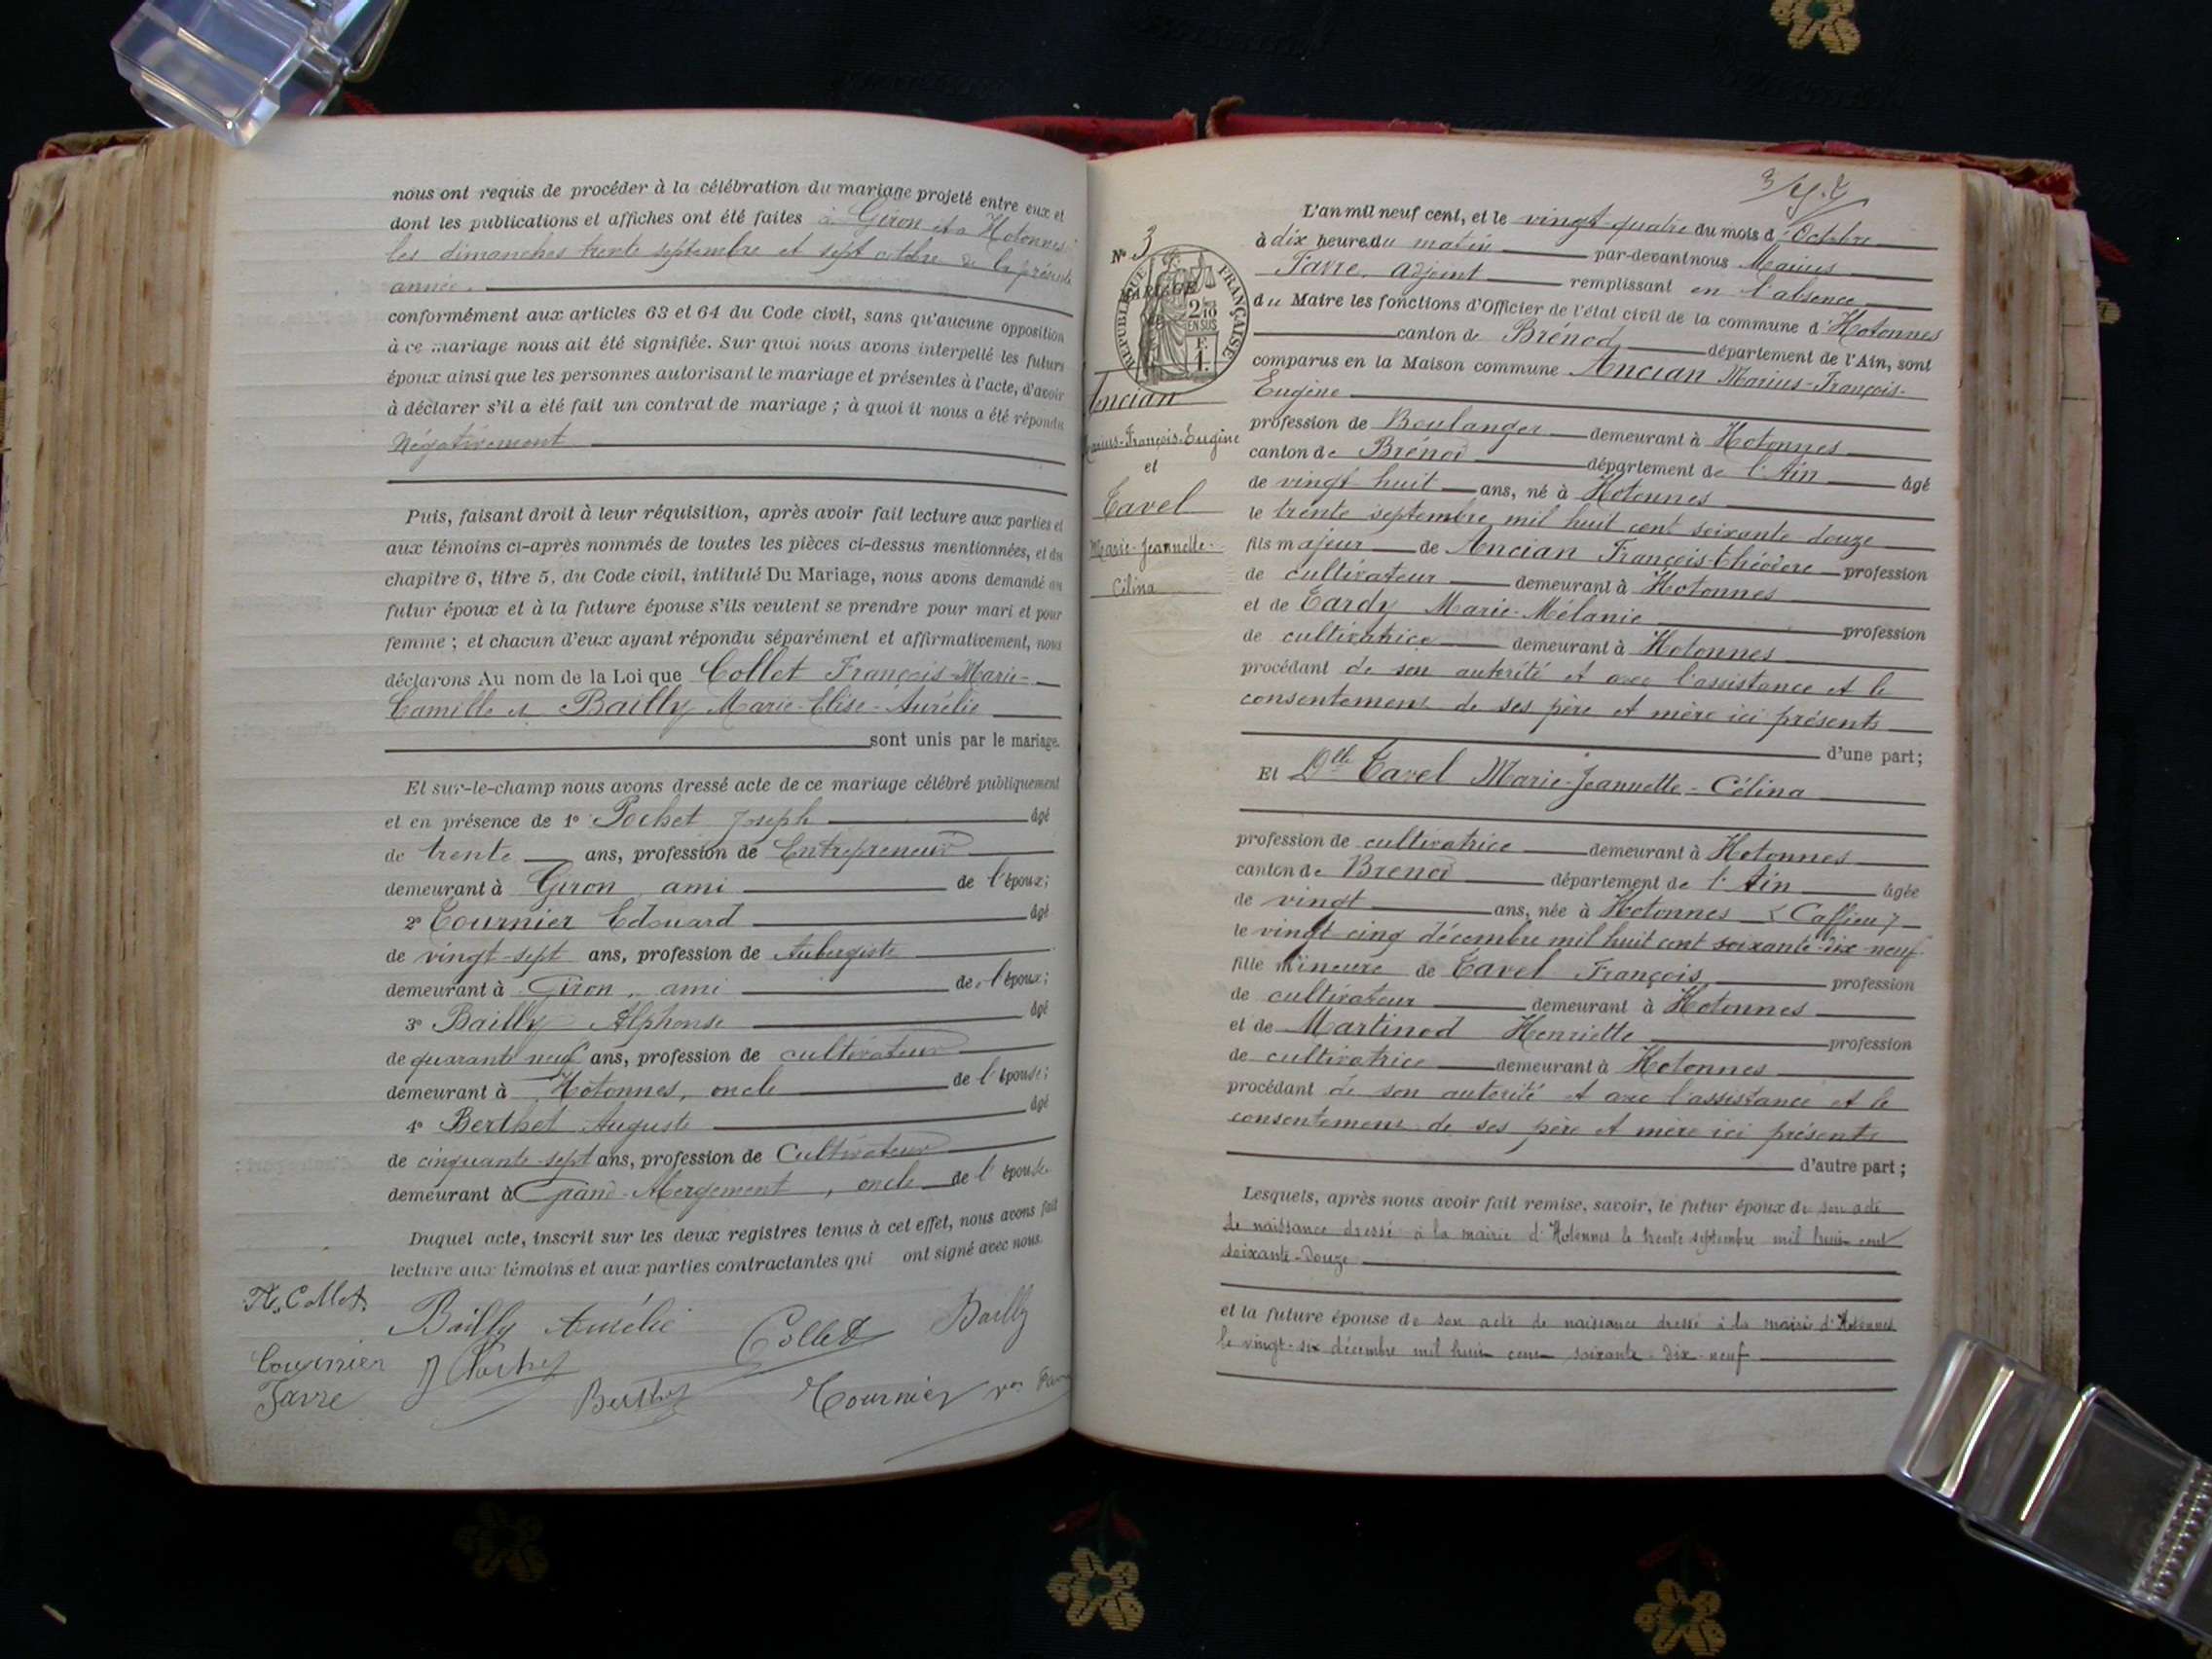 nous ont requis de procéder à la célébration du mariage projeté entre eux et
dont les publications et affiches ont été faites à Giron et à Hotonnes
les dimanches trente septembre et sept octobre de la présente
année.
conformément aux articles 63 et 64 du Code civil, sans qu'aucune opposition
à ce mariage nous ait été signifiée. Sur quoi nous avons interpellé les futurs
époux ainsi que les personnes autorisant le mariage et présentes à l'acte, d'avoir
à déclarer s'il a été fait un contrat de mariage ; à quoi il nous a été répondu
Négativement
Puis, faisant droit à leur réquisition, après avoir fait lecture aux parties et
aux témoins ci-après nommés de toutes les pièces ci-dessus mentionnées, et du
chapitre 6, titre 5, du Code civil, intitulé Du Mariage, nous avons demandé au
futur époux et à la future épouse s'ils veulent se prendre pour mari et pour
femme ; et chacun d'eux ayant répondu séparément et affirmativement, nous
déclarons Au nom de la Loi que Collet François-Marie-
Camille et Bailly Marie-Elise-Aurélie
sont unis par le mariage.
Et sur-le-champ nous avons dressé acte de ce mariage célébré publiquement
et en présence de 1° Pochet Joseph âgé
de trente ans, profession de Entrepreneur
demeurant à Giron, ami de l'époux;
2° Tournier Edouard âgé
de vingt-sept ans, profession de Aubergiste
demeurant à Giron, ami de l'époux;
3° Bailly Alphonse âgé
de quarante neuf ans, profession de cultivateur
demeurant à Hotonnes, oncle de l'épouse;
4° Berthet Auguste âgé
de cinquante-sept ans, profession de Cultivateur
demeurant à Grand-Abergement, oncle de l'épouse
Duquel acte, inscrit sur les deux registres tenus à cet effet, nous avons fait
lecture aux témoins et aux parties contractantes qui ont signé avec nous.
Collet
Bailly Aurélie Collet Bailly
Tournier J Pochet
Favre Berthet Tournier
3
L'an mil neuf cent, et le vingt-quatre du mois d'Octobre
à dix heure du matin par-devant nous Marius
Favre, adjoint remplissant en l'absence
du Maire les fonctions d'Officier de l'état civil de la commune d'Hotonnes
canton de Brénod département de l'Ain, sont
comparus en la Maison commune Ancian Marius-François-
Eugène
profession de Boulanger demeurant à Hotonnes
canton de Brénod département de l'Ain âgé
de vingt huit ans, né à Hotonnes
le trente septembre mil huit cent soixante douze
fils majeur de Ancian François-Théodore profession
de cultivateur demeurant à Hotonnes
et de Tardy Marie-Mélanie profession
de cultivatrice demeurant à Hotonnes
procédant de son autorité et avec l'assistance et le
consentement de ses père et mère ici présents
d'une part;
Et Dlle Tavel Marie-Jeannette-Célina
profession de cultivatrice demeurant à Hotonnes
canton de Brenod département de l'Ain âgée
de vingt ans, née à Hotonnes (Caffieu)
le vingt cinq décembre mil huit cent soixante-dix-neuf
fille mineure de Tavel François profession
de cultivateur demeurant à Hotonnes
et de Martinod Henriette profession
de cultivatrice demeurant à Hotonnes
procédant de son autorité et avec l'assistance et le
consentement de ses père et mère ici présents
d'autre part;
Lesquels, après nous avoir fait remise, savoir, le futur époux de son acte
de naissance dressé à la mairie d'Hotonnes le trente septembre mil huit cent
soixante-douze
et la future épouse de son acte de naissance dressé à la mairie d'Hotonnes
le vingt-six décembre mil huit cent soixante-dix-neuf
N° 3
MARIAGE
RÉPUBLIQUE FRANÇAISE
2/10
EN SUS
F.
1.
Ancian
Marius-François-Eugène
et
Tavel
Marie-Jeannette-
Célina